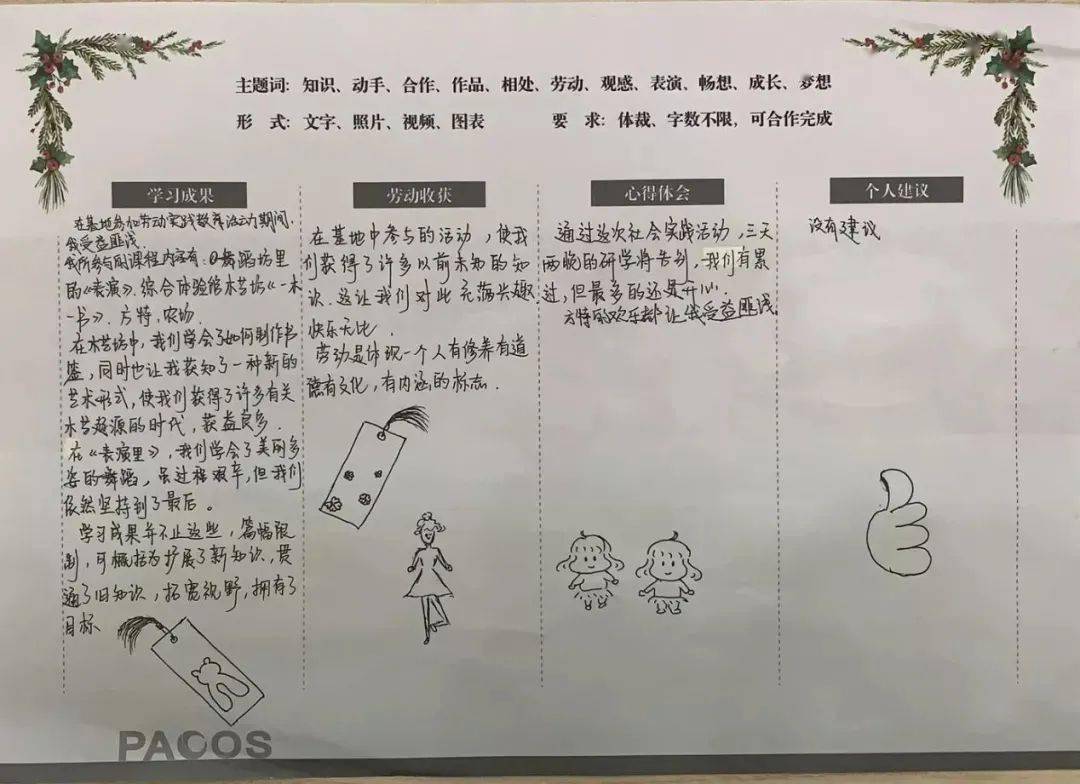 主题词: 知识、动手、合作、作品、相处、劳动、观感、表演、畅想、成长、梦想
形 式: 文字、照片、视频、图表 要 求: 体裁、字数不限，可合作完成
学习成果
在基地参加劳动实践教育活动期间，
我受益匪浅。
我所参与的课程内容有：舞蹈坊里
的《表演》、综合体验馆木艺坊《一木
一书》、方特、农场.
在木艺坊中，我们学会了如何制作书
签，同时也让我获知了一种新的
艺术形式，使我们获得了许多有关
木艺起源的时代，获益良多.
在《表演里》，我们学会了美丽多
姿的舞蹈，虽过程艰辛，但我们
依然坚持到了最后。
学习成果并不止这些，篇幅限
制，可概括为扩展了新知识，贯
通了旧知识，拓宽视野，拥有了
目标
劳动收获
在基地中参与的活动，使我
们获得了许多以前未知的知
识.这让我们对此充满兴趣，
快乐无比.
劳动是体现一个人有修养有道
德有文化，有内涵的标志.
心得体会
通过这次社会实践活动，三天
两晚的研学将告别，我们有累
过，但最多的还是开心.
方特的欢乐都让我受益匪浅
个人建议
没有建议
PACOS